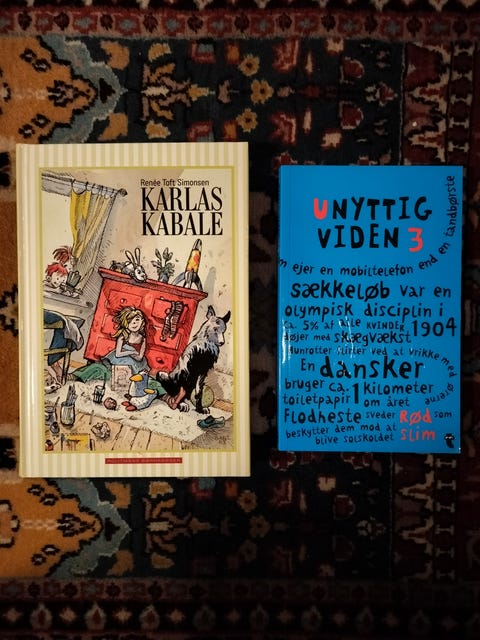 Renée Toft Simonsen
KARLAS
KABALE
POLITIKENS BØRNEBØGER
UNYTTIG
VIDEN 3
ejer en mobiltelefon end en tandbørste
sækkeløb var en
olympisk disciplin i
1904
ca. 5% af alle KVINDER
døjer med skægvækst
Hunrotter flirter ved at vrikke med ørerne
En dansker
bruger ca. 1 kilometer
toiletpapir om året
Flodheste sveder RØD
slim som
beskytter dem mod at
blive solskoldet